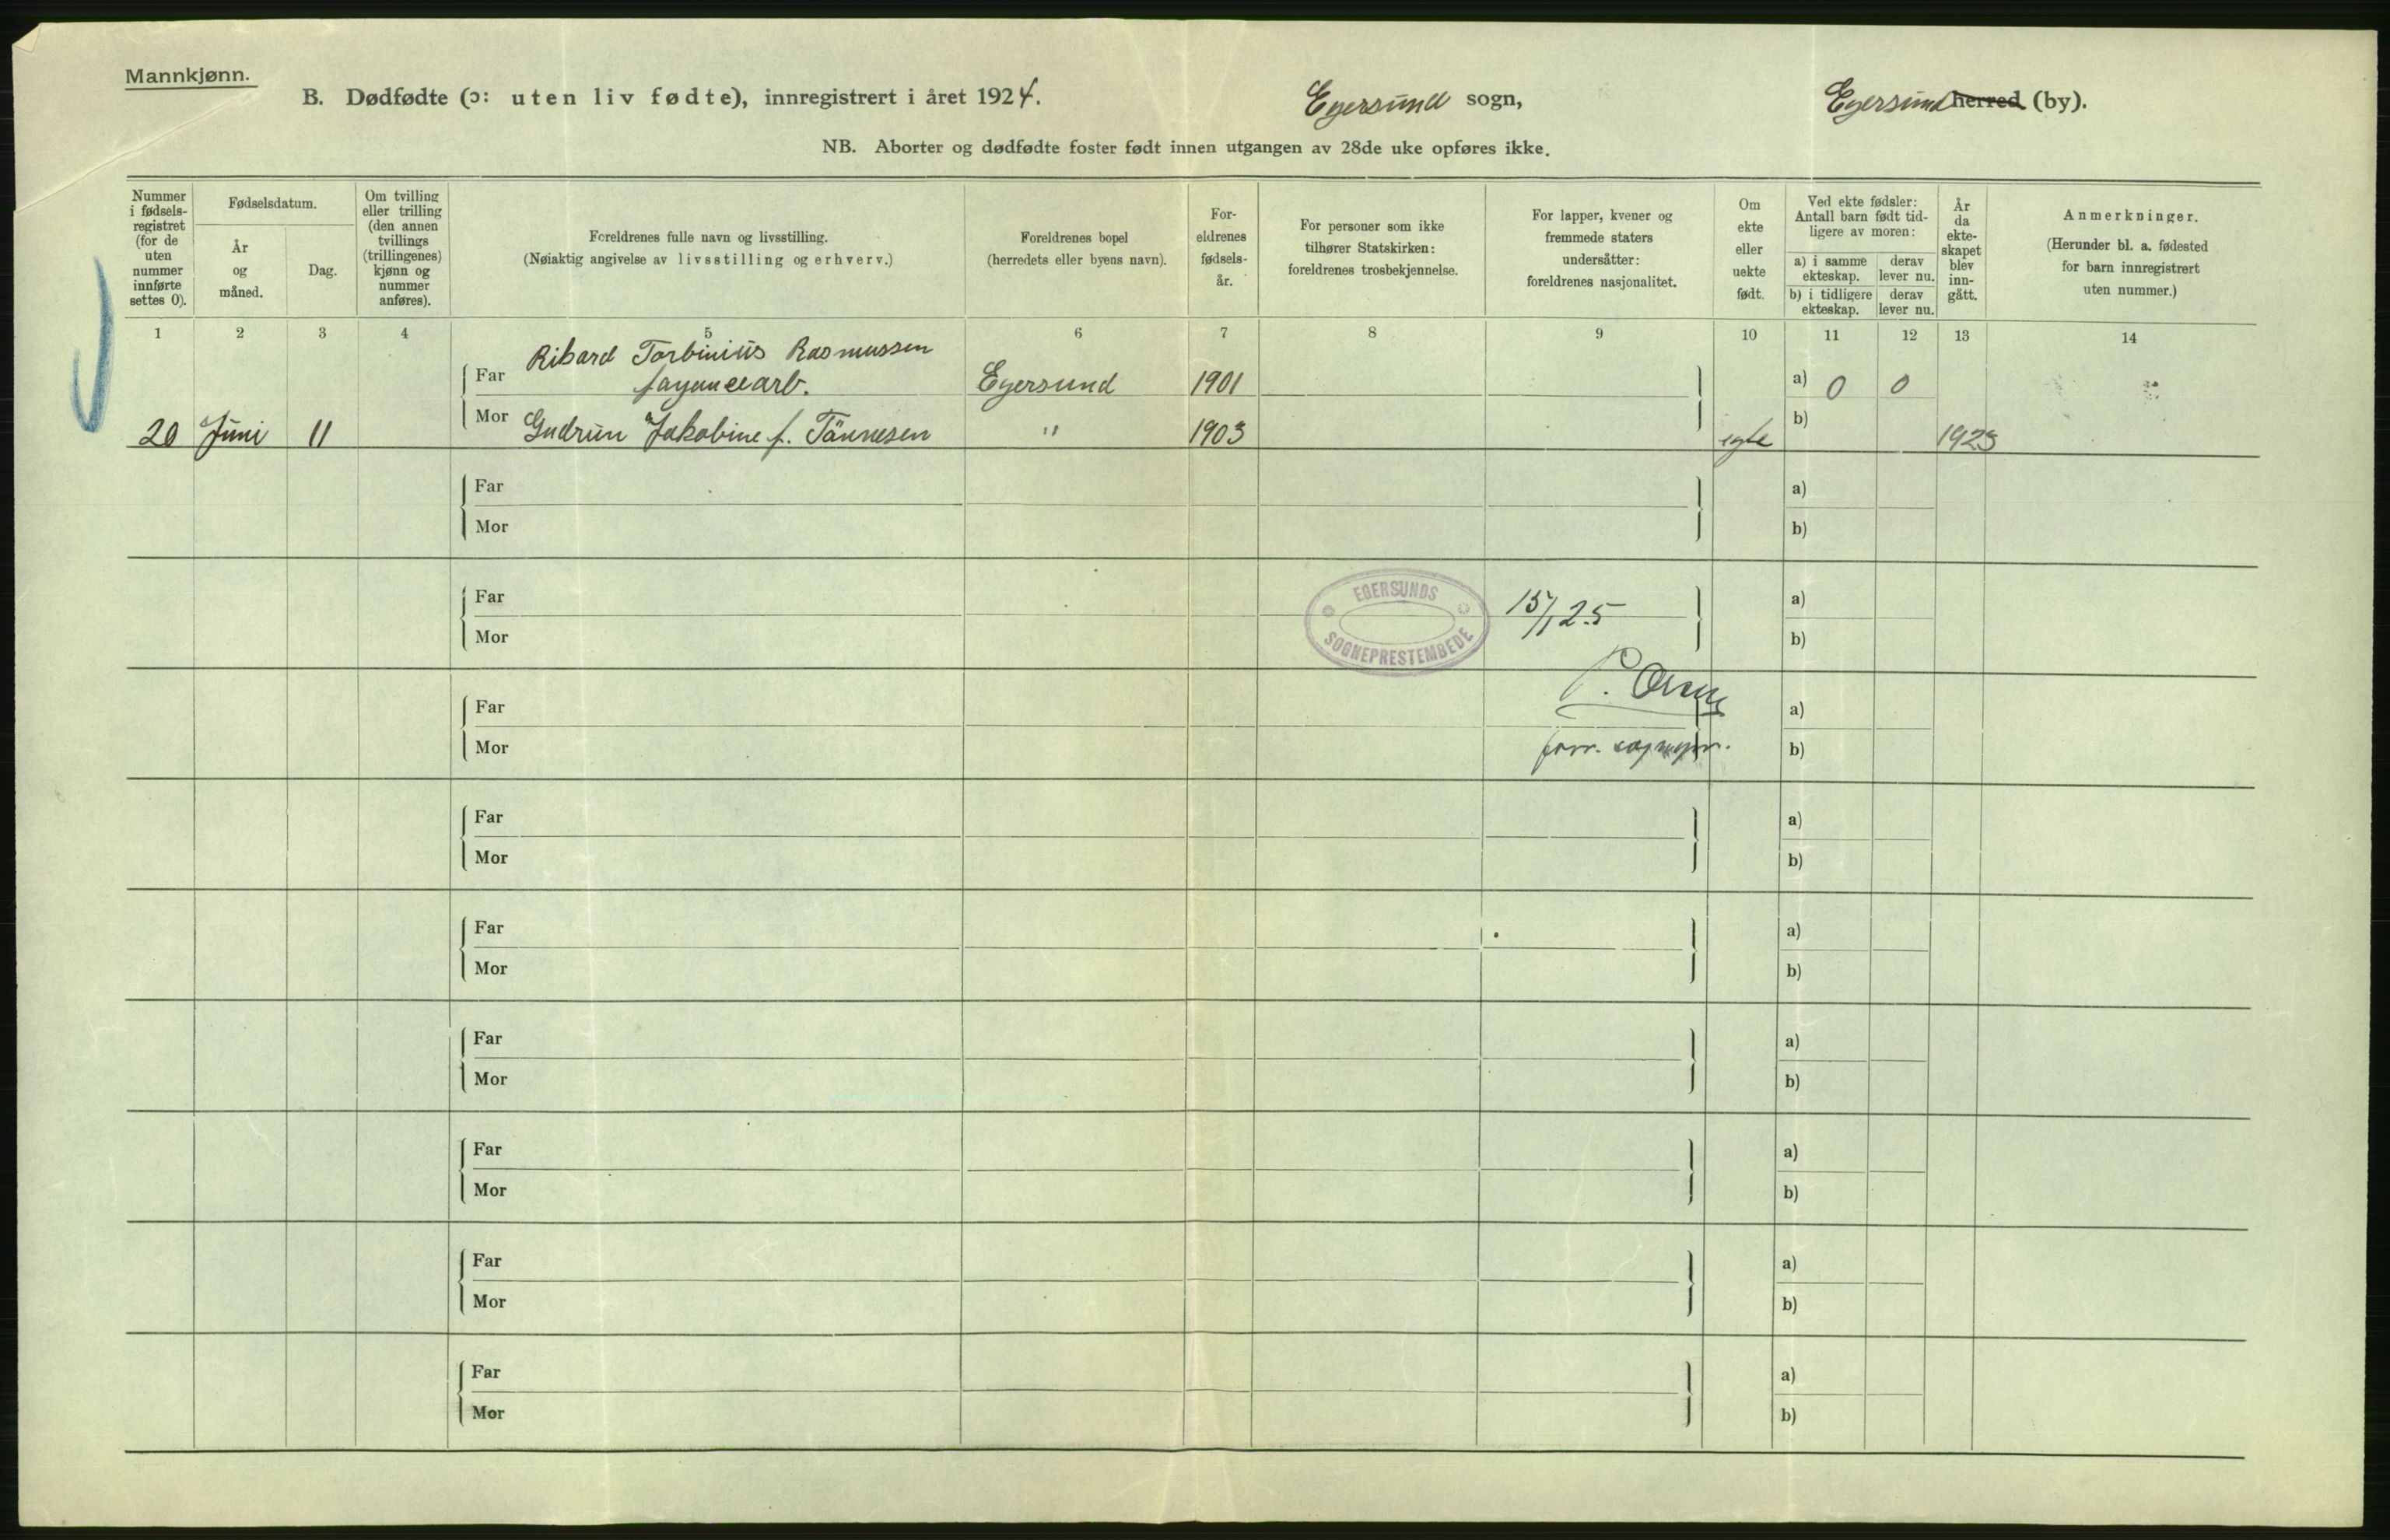 Mannkjønn.
B. Dødfødte (ɔ: uten liv fødte), innregistrert i året 1924.
Egersund sogn,
Egersund herred (by).
NB. Aborter og dødfødte foster født innen utgangen av 28de uke opføres ikke.
Nummer
i fødsels-
registret
(for de
uten
nummer
innførte
settes 0).
Fødselsdatum.
År
og
måned.
Dag.
Om tvilling
eller trilling
(den annen
tvillings
(trillingenes)
kjønn og
nummer
anføres).
Foreldrenes fulle navn og livsstilling.
(Nøiaktig angivelse av livsstilling og erhverv.)
Foreldrenes bopel
(herredets eller byens navn).
For-
eldrenes
fødsels-
år.
For personer som ikke
tilhører Statskirken:
foreldrenes trosbekjennelse.
For lapper, kvener og
fremmede staters
undersåtter:
foreldrenes nasjonalitet.
Om
ekte
eller
uekte
født.
Ved ekte fødsler:
Antall barn født tid-
ligere av moren:
a) i samme
ekteskap.
derav
lever nu.
b) i tidligere
ekteskap.
derav
lever nu.
År
da
ekte-
skapet
blev
inn-
gått.
Anmerkninger.
(Herunder bl. a. fødested
for barn innregistrert
uten nummer.)
1 2 3 4 5 6 7 8 9 10 11 12 13 14
Rikard Torbinius Rasmussen
Far fayancearb. Egersund 1901 a) 0 0
20 Juni 11 Mor Gudrun Jakobine f. Tönnesen " 1903 egte b) 1923
Far a)
Mor b)
Far a)
EGERSUNDS
SOGNEPRESTEMBEDE
15/1 25
Mor b)
P.
Far a)
Mor b)
Far a)
Mor b)
Far a)
Mor b)
Far a)
Mor b)
Far a)
Mor b)
Far a)
Mor b)
Far a)
Mor b)